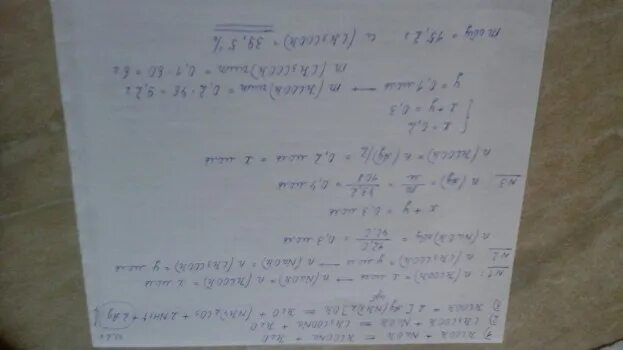 1) HCOOH + NaOH = HCOONa + H2O
2) CH3COOH + NaOH = CH3COONa + H2O
3) HCOOH + 2[Ag(NH3)2]OH = (NH4)2CO3 + 2NH3↑ + 2Ag
№1: n(HCOOH) = x моль → n(NaOH) = n(HCOOH) = x моль
№2 n(CH3COOH) = y моль → n(NaOH) = n(CH3COOH) = y моль
n(NaOH) = = 0,3 моль
x + y = 0,3 моль
№3 n(Ag) = m/M = 43,2/108 = 0,4 моль
n(HCOOH) = n(Ag)/2 = 0,2 моль = x моль
{ x = 0,2
x + y = 0,3
y = 0,1 моль → m(HCOOH) = 0,2 · 46 = 9,2 г
m(CH3COOH) = 0,1 · 60 = 6 г
m = 15,2 г w(CH3COOH) = 39,5 %